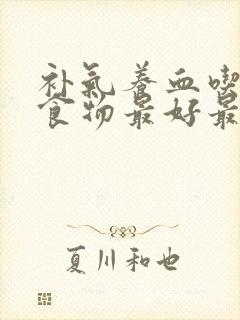 补氣养血喫
食物最好最
夏川和也